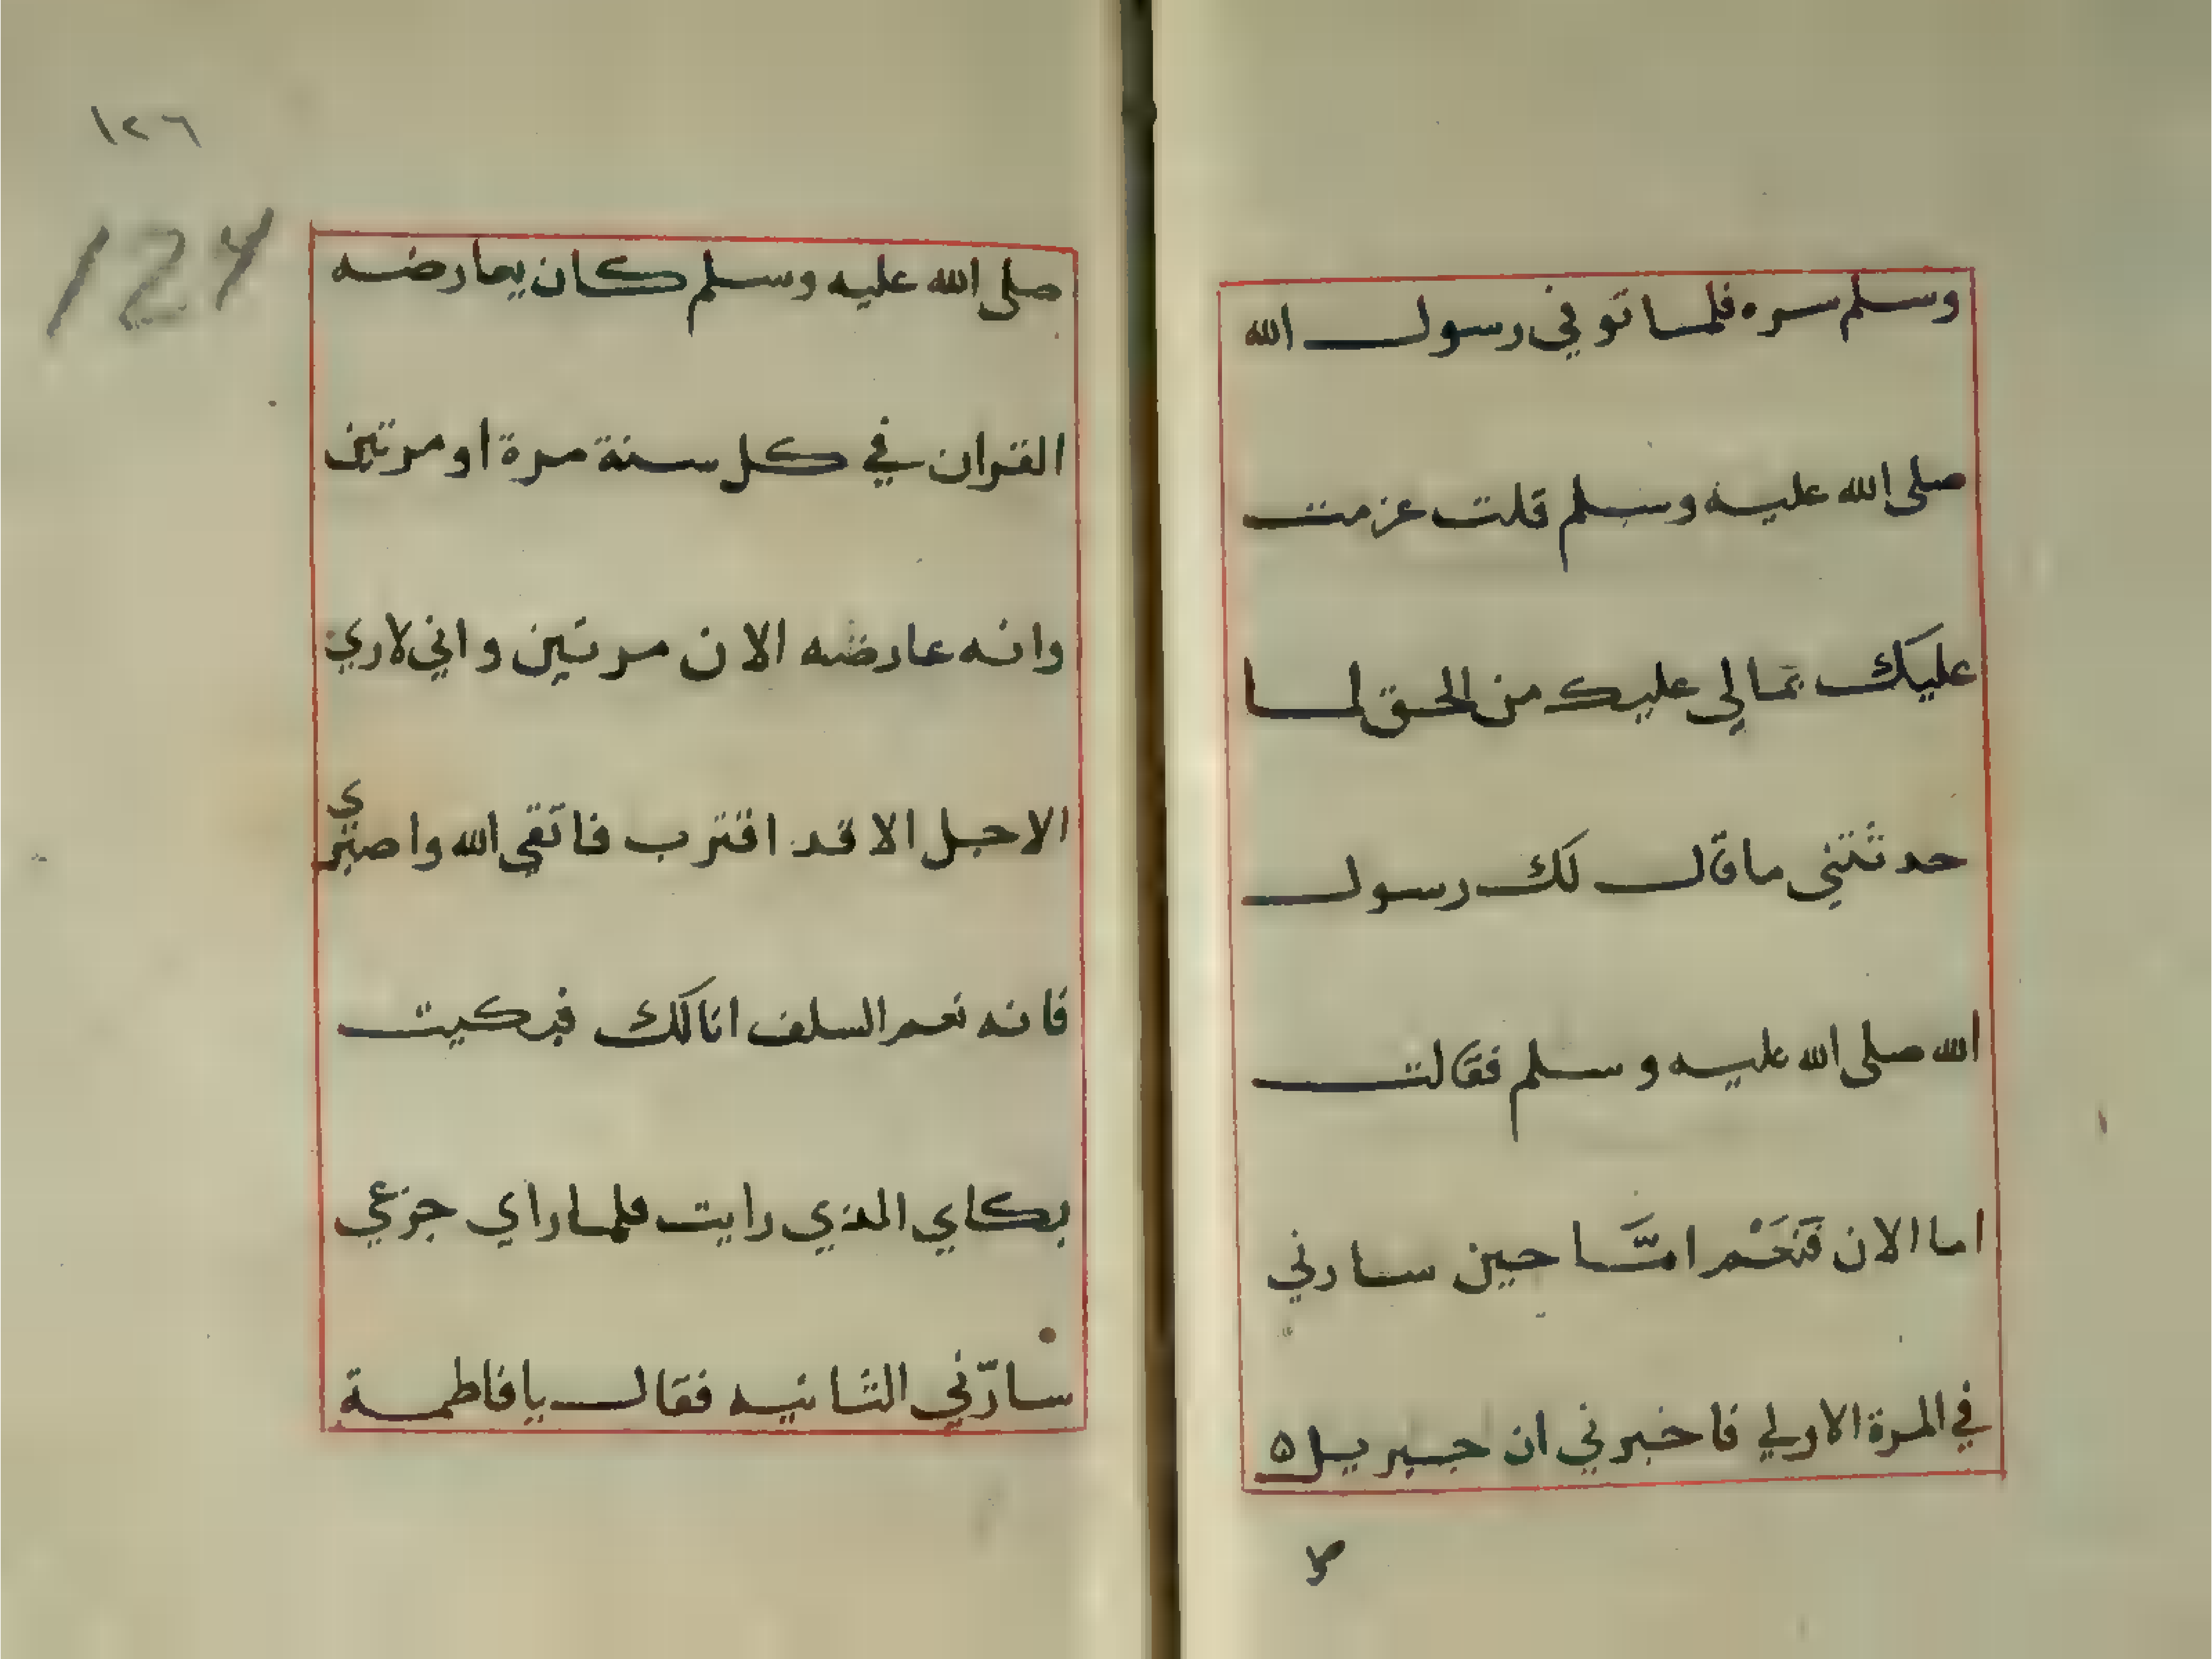 وسلم سره فلما توفي رسول الله
صلى الله عليه وسلم قلت عزمت
عليك بمالي عليك من الحق لما
حدثتني ما قال لك رسول
الله صلى الله عليه وسلم فقالت
اما الان فَنَعَمْ امَّا حين سارني
في المرة الاولي فاخبرني ان جبريل ه
١٢٦
صلى الله عليه وسلم كان يعارضه
القران في كل سنة مرة او مرتين
وانه عارضه الان مرتين واني لاري
الاجل الا قد اقترب فاتقي الله واصبري
فانه نعم السلف انا لك فبكيت
بكاي الذي رايت فلما راي جزعي
سارّني الثانيه فقال يا فاطمة